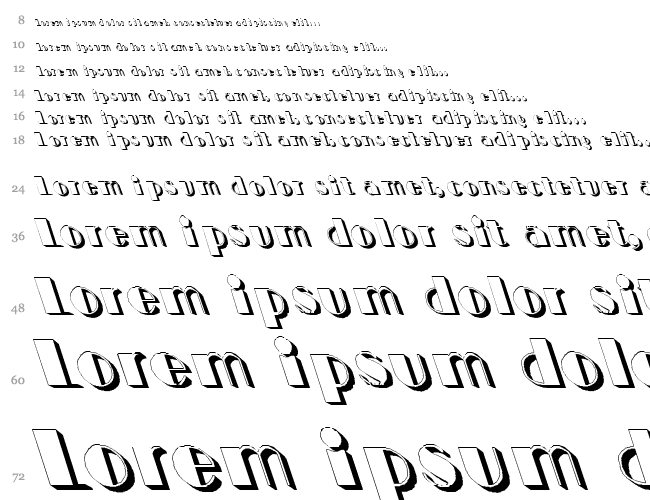 8 lorem ipsum dolor sit amet, consectetuer adipiscing elit...
10 lorem ipsum dolor sit amet, consectetuer adipiscing elit...
12 lorem ipsum dolor sit amet, consectetuer adipiscing elit...
14 lorem ipsum dolor sit amet, consectetuer adipiscing elit...
16 lorem ipsum dolor sit amet, consectetuer adipiscing elit...
18 lorem ipsum dolor sit amet, consectetuer adipiscing elit...
24 lorem ipsum dolor sit amet, consectetuer a
36 lorem ipsum dolor sit amet, c
48 lorem ipsum dolor sit
60 lorem ipsum dolo
72 lorem ipsum d